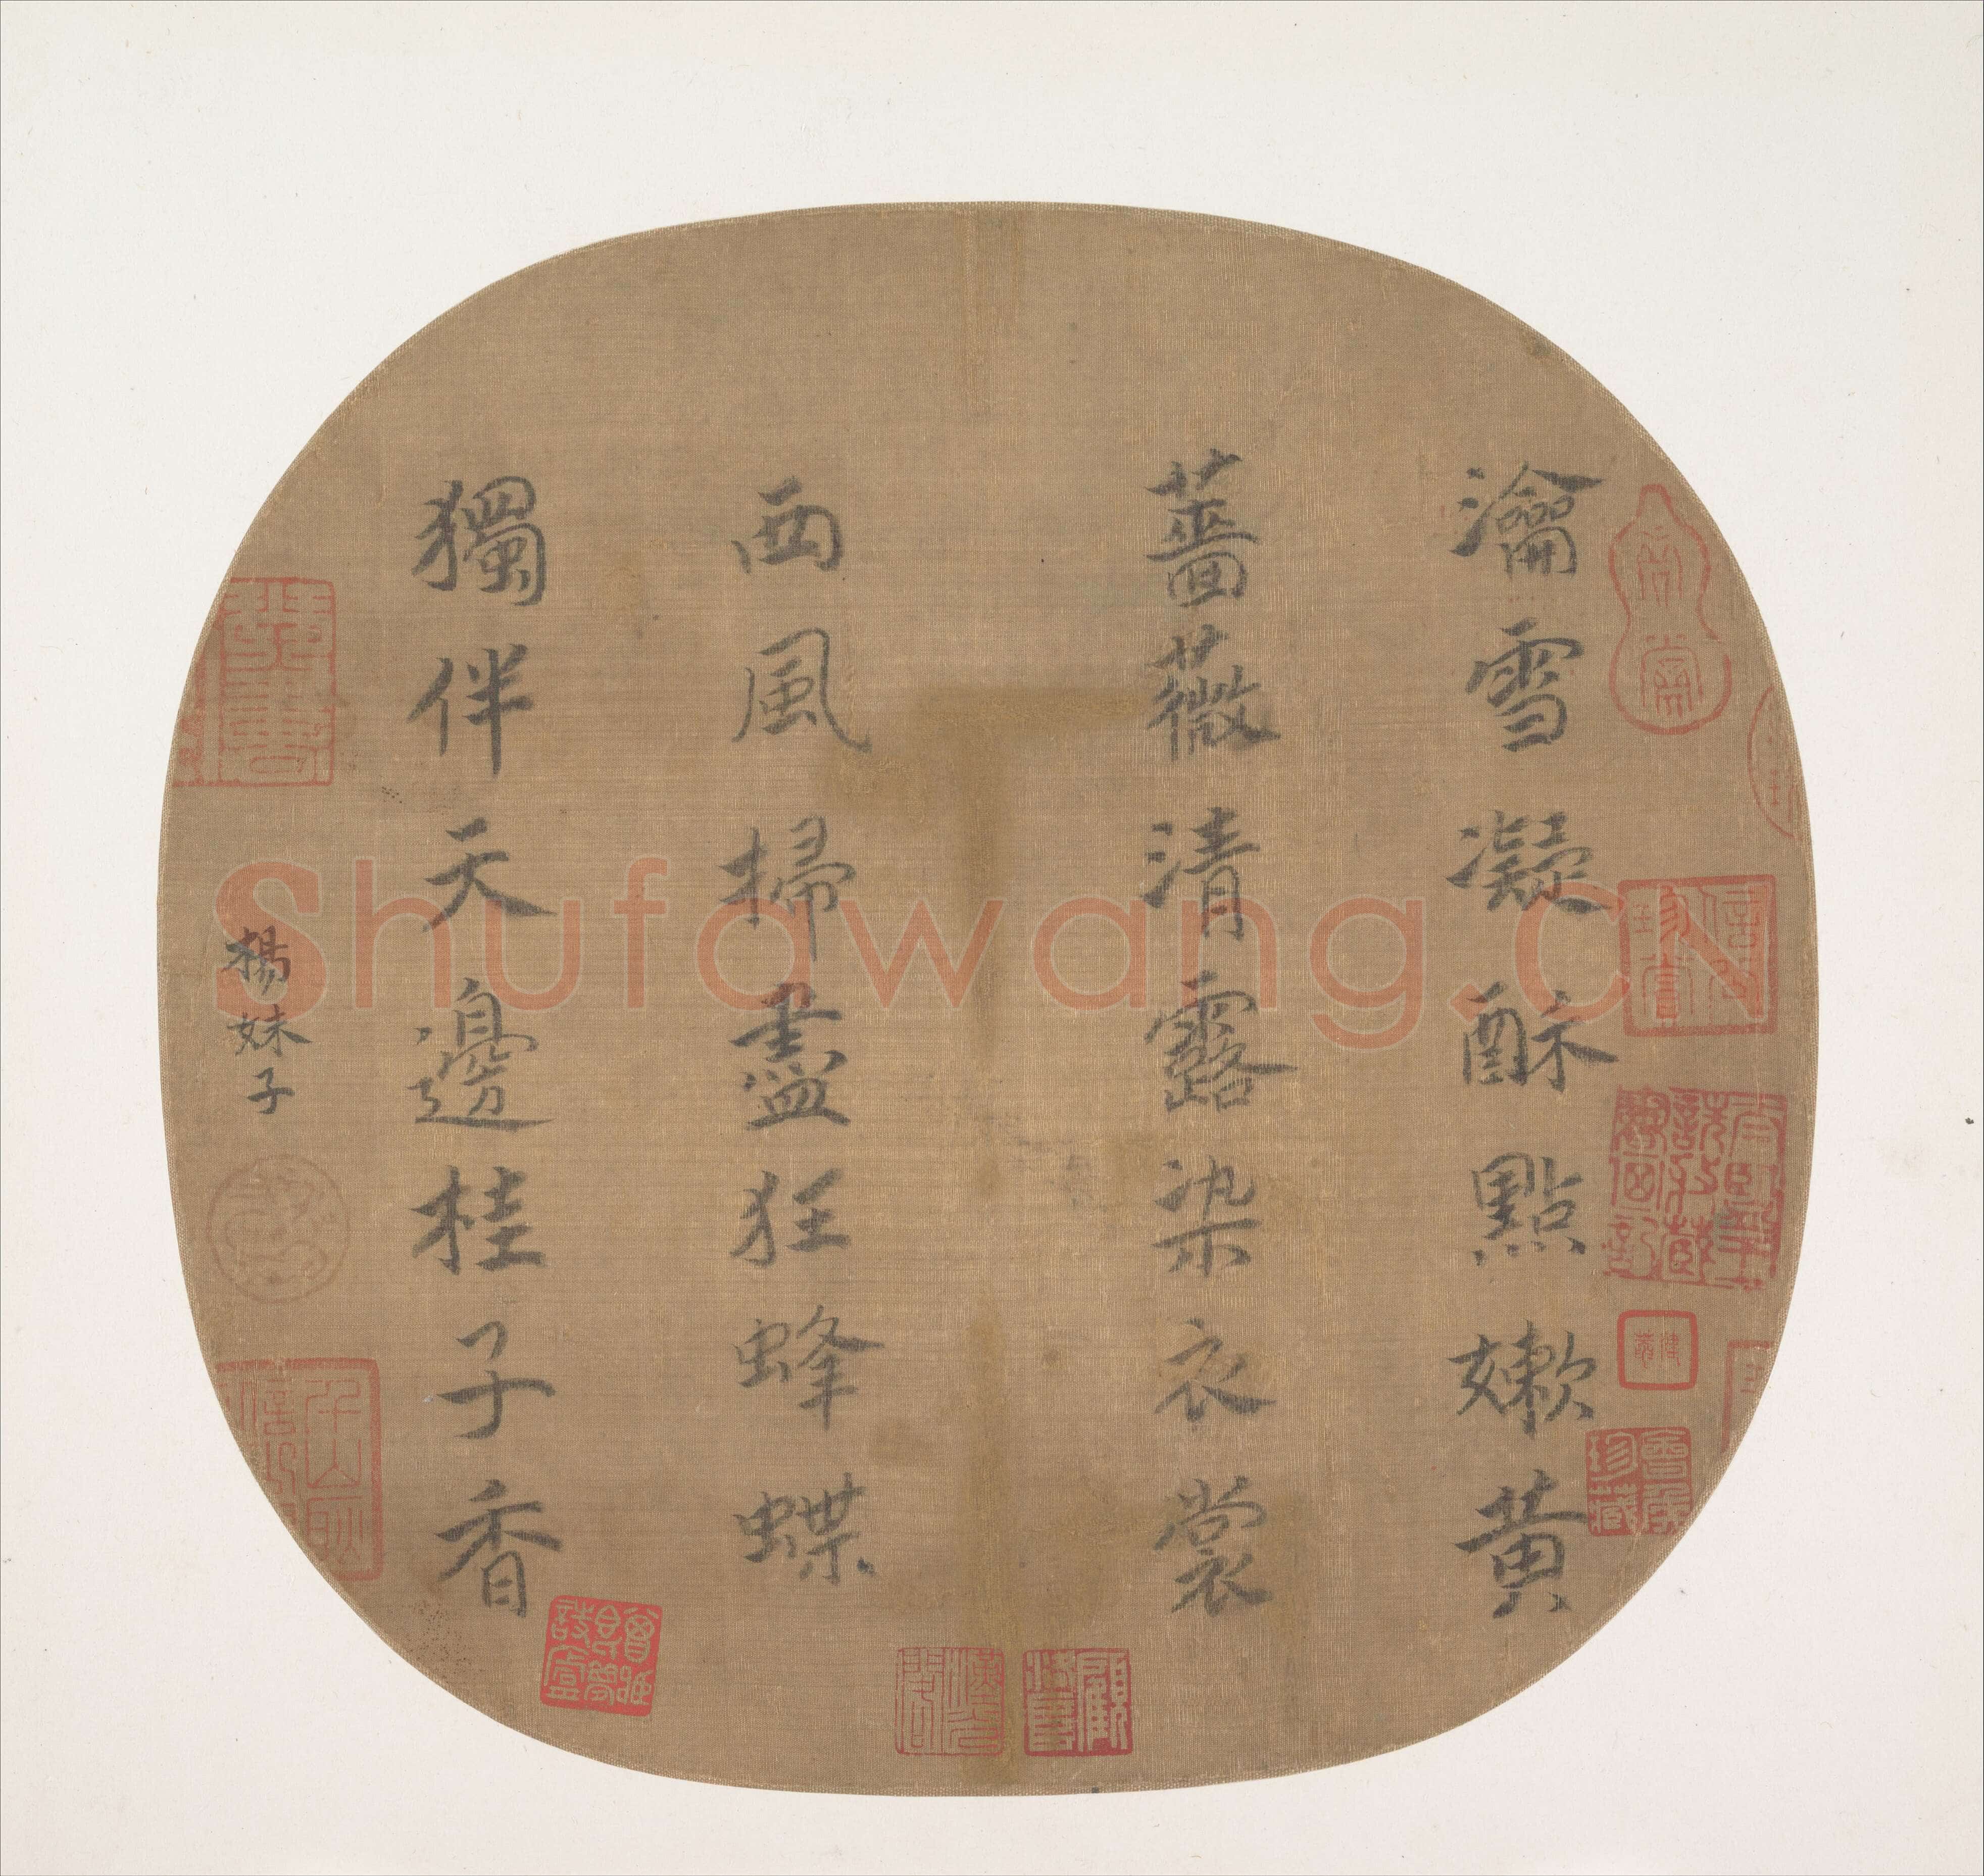 瀹雪凝酥點嫩黃
薔薇清露染衣裳
西風掃盡狂蜂蝶
獨伴天邊桂子香
楊妹子
Shufawang.CN
珍藏